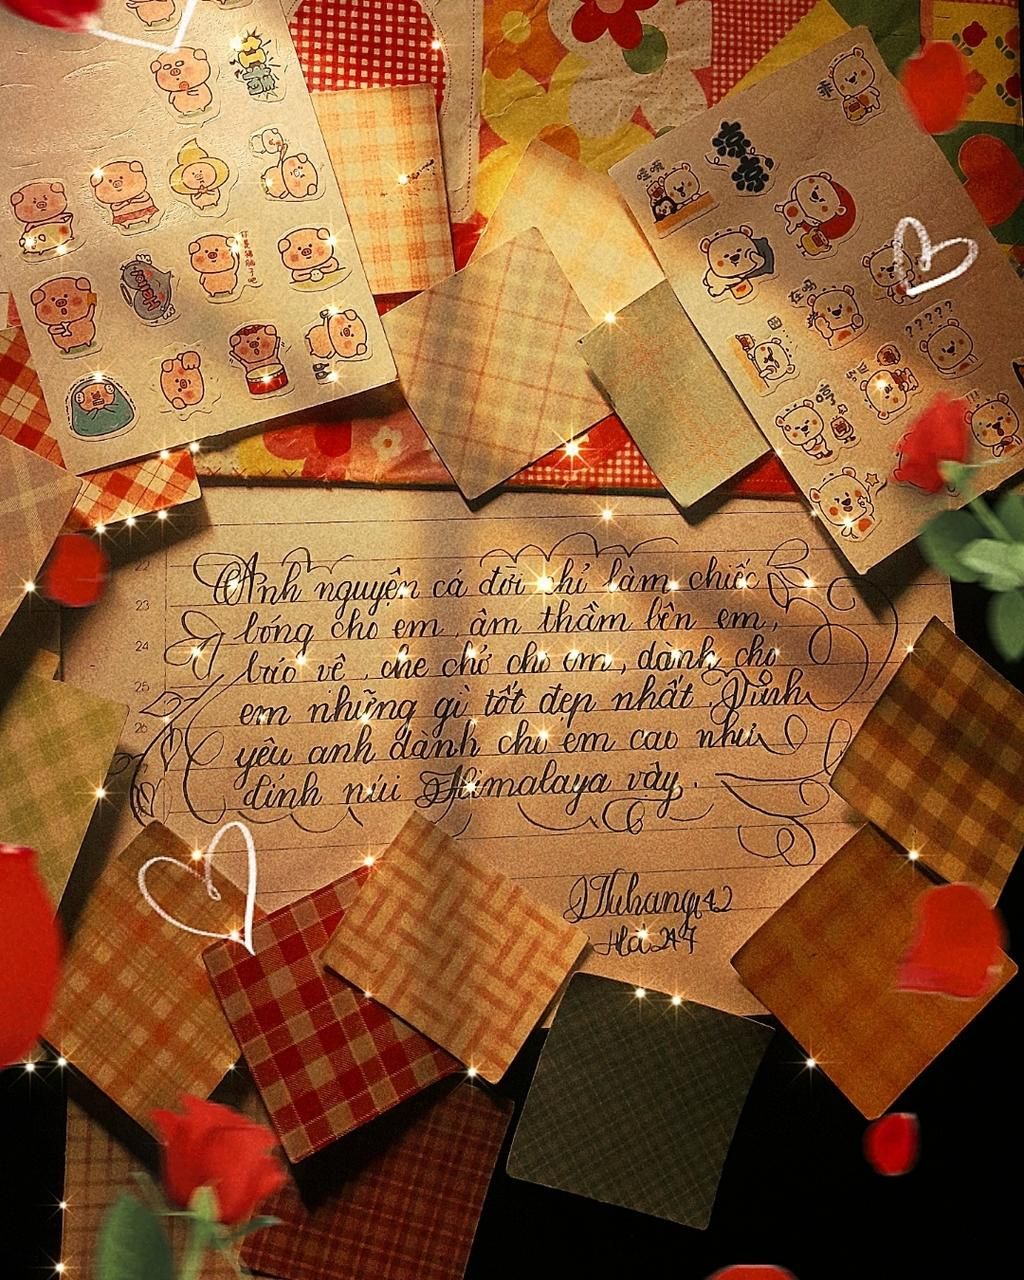 22
23
24
25
26
Anh nguyện cả đời chỉ làm chiếc
bóng cho em, âm thầm bên em,
bảo vệ, che chở cho em, dành cho
em những gì tốt đẹp nhất. Tình
yêu anh dành cho em cao như
đỉnh núi Himalaya vậy.
?????